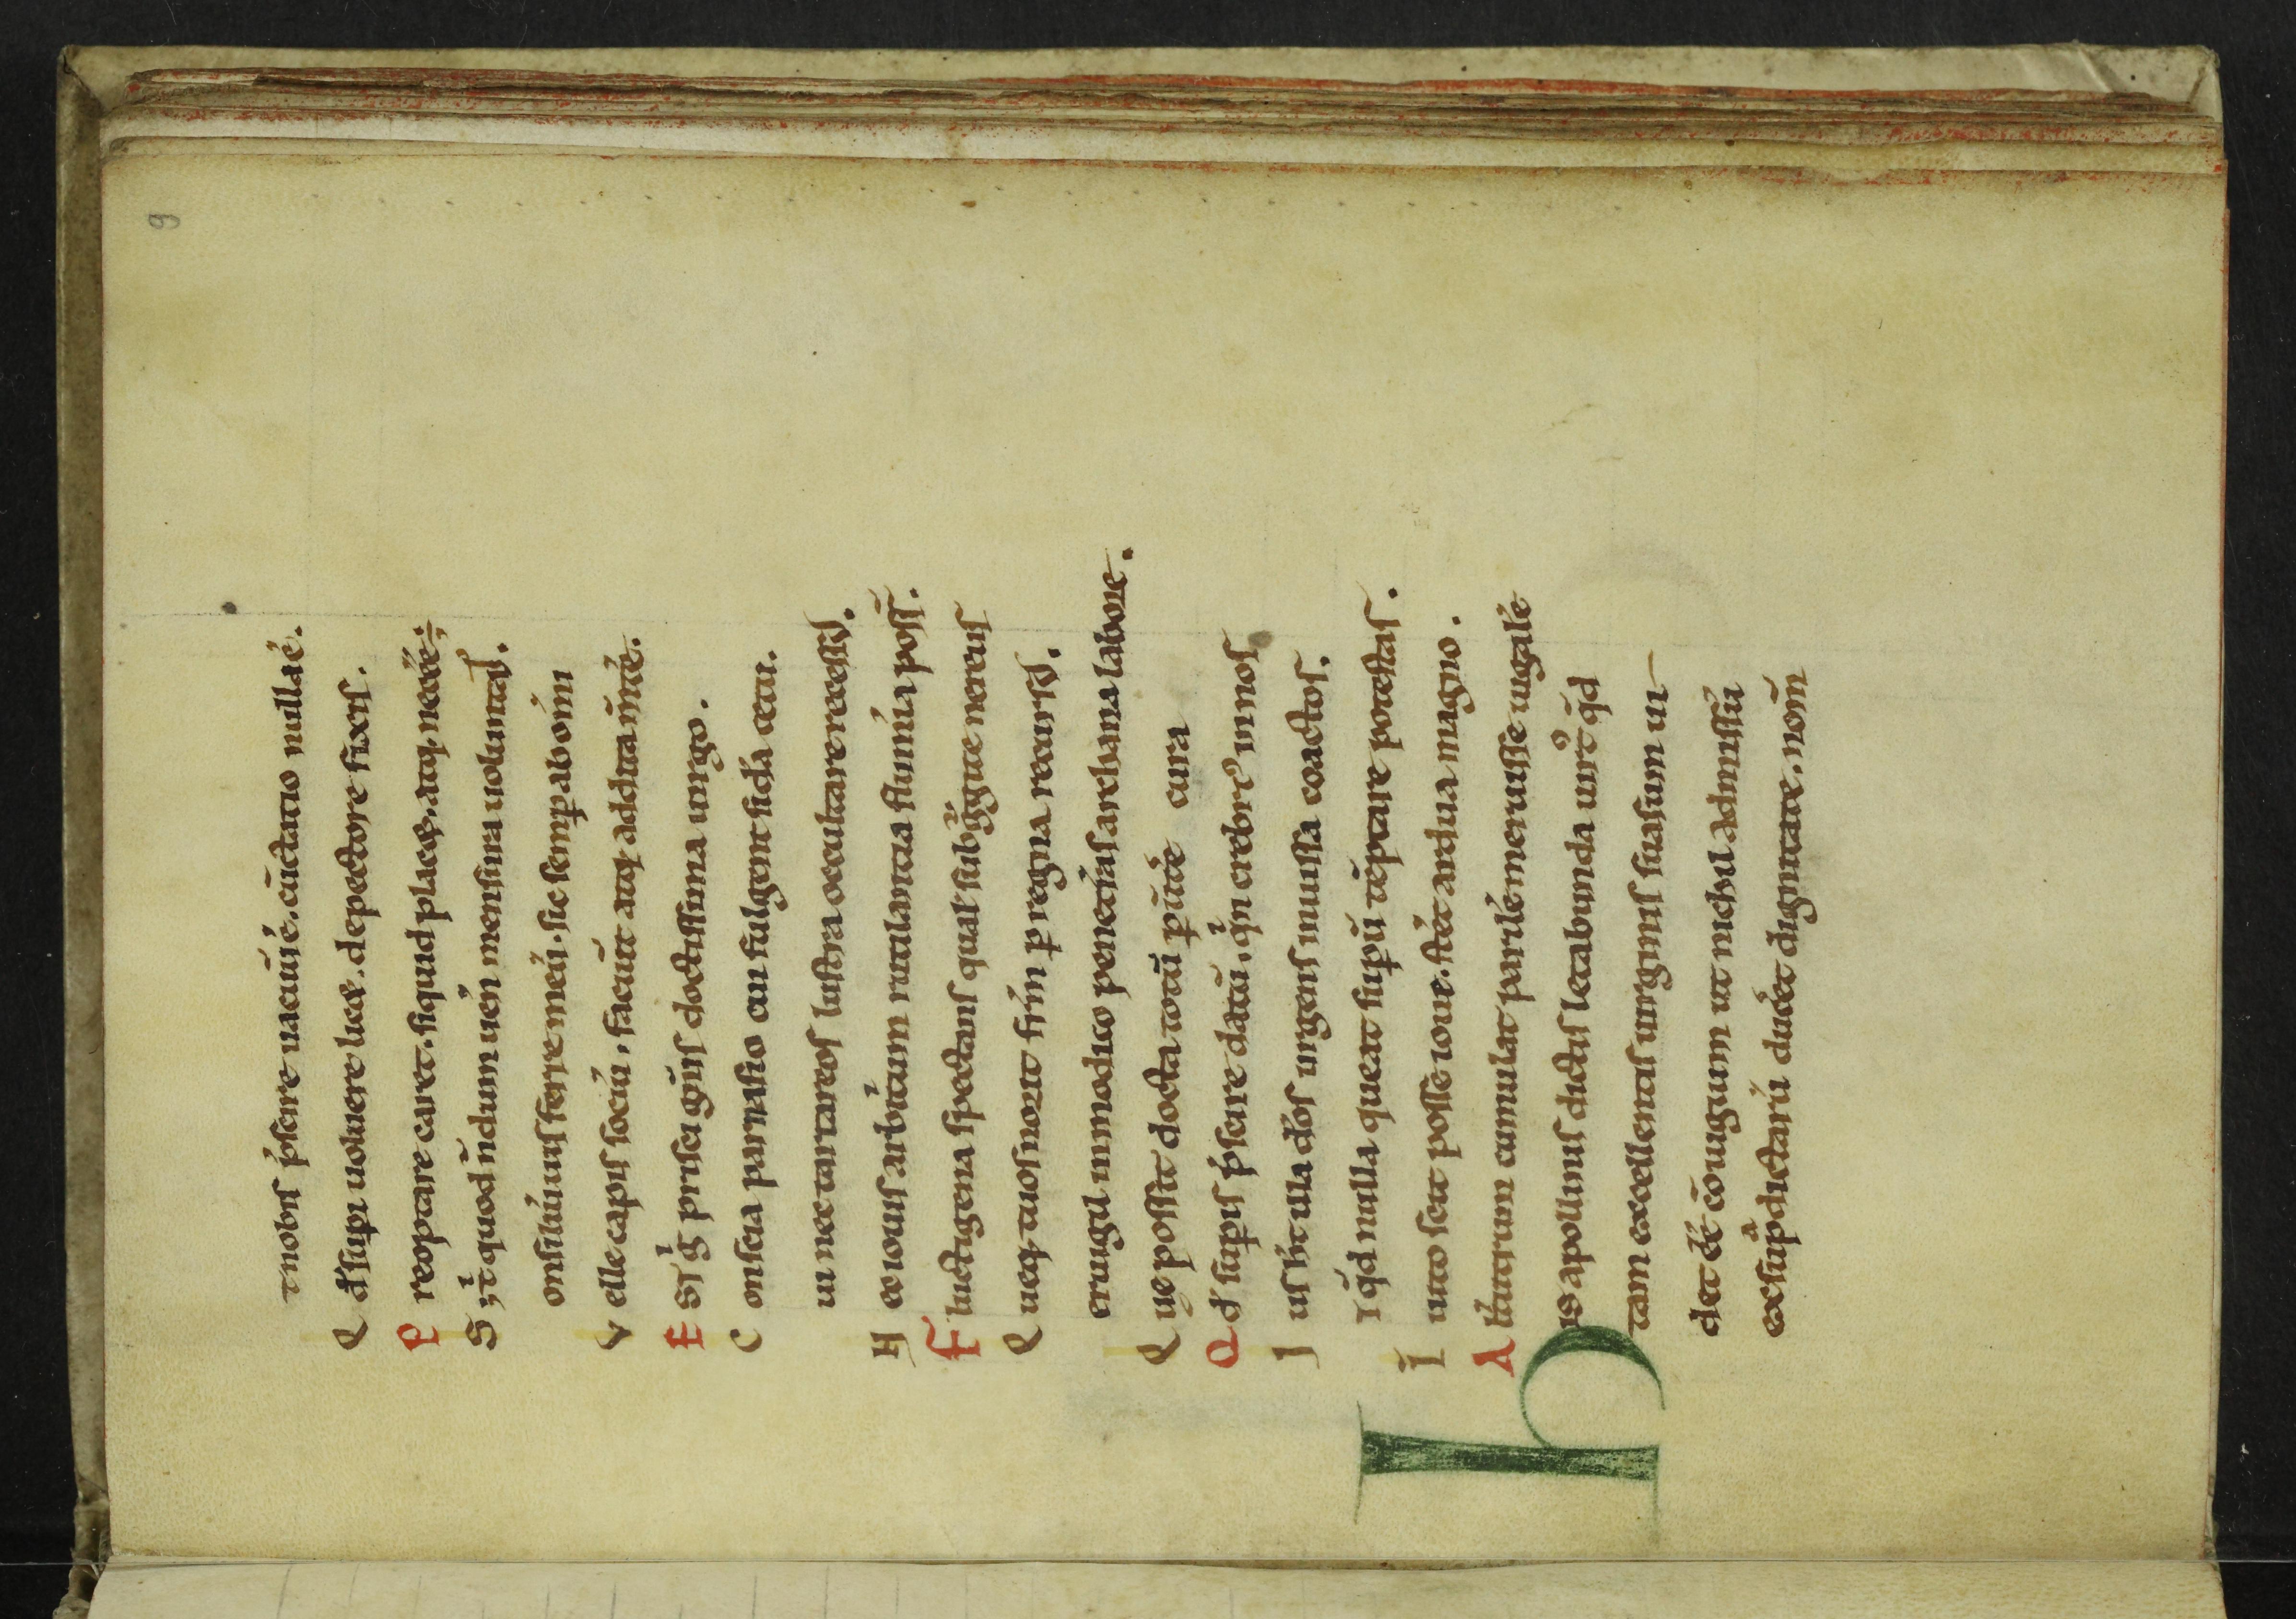 9
t nobis p̄scire uacuū ē. cūctatio nulla ē.
Q d̄ sup̱i uoluere licet. de pectore fixis.
P reoptare caret. siquid placet. atq; necē ē.
S; qͥ quod ñdum uen̄ mensura uoluntas.
onsiliū uis ferre meū. sic semp̱ ab om̄i
V elle capis sociū. faciūt atq; addita m̄tē.
E st gͥ prisci gn̄is doctissima uirgo.
C onscia parnasio cui fulgent sid̄a cetu.
ui nec tartareos lustra occultare recessus.
H ec iouis arbitͥum rutilantia flumīa poss̄.
F luctigena spectans qual' sub gͧgite nereus
Q ueq; tuos norit fr̄m p̱ regna recursus.
eruigil inmodico penet̄ās archana labore.
Q ue possit docta totū p̱uītē cura
Q d̄ sup̱is p̄scire datū. qͥn crebriꝰ in nos
J us h̄t illa d̄os urgens in iussa coactos.
t qd̄ nulla queat sup̱ū tēptare potestas.
I nuito sciat posse ioue. stēt ardua magno.
A lt̄utrum cumulat parilē meruisse iugalē
his apollinis dictis letabunda uirtꝰ qd̄
tam excellentis uirginis suasum ui
det ēē cōiugium ut nichil admissū
ex sup̱ͣ dictarū ducēt dignitate. nom̄